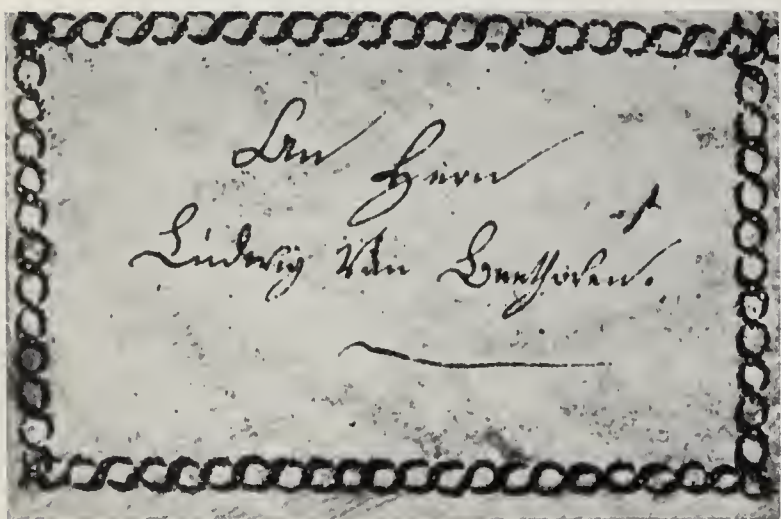 An Herrn
Ludwig Van Beethoven.